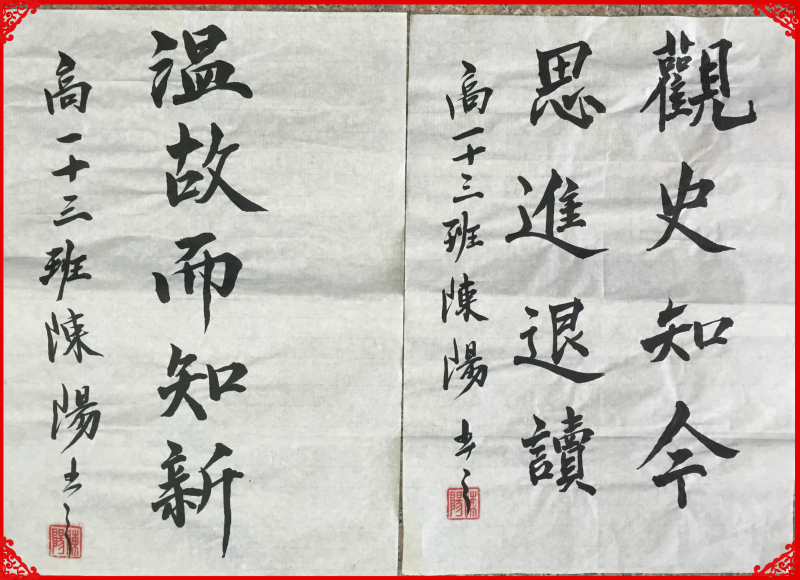 觀史知今
思進退讀
高一十三班陳陽書
溫故而知新
高一十三班陳陽书
陳陽
陳陽